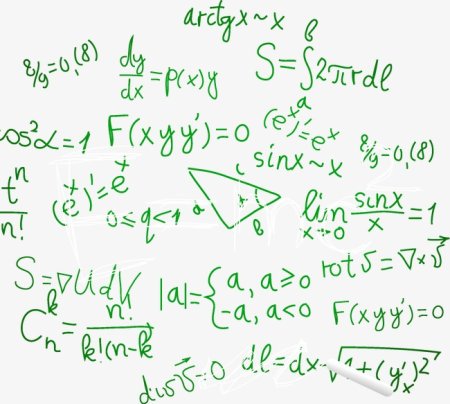 arctgx~x
8/9=0,(8)
dy/dx=p(x)y
S=∫2πrdl
b
cos²α=1
F(xyy')=0
(eˣ)'=eˣ
a
sinx~x
8/9=0,(8)
tⁿ/n!
(eˣ)'=eˣ
0≤q<1
a
b
c
lim x→0 sinx/x=1
S=∇UdV
|a|={a, a≥0
-a, a<0
rotv=∇×v
F(xyy')=0
Cₙᵏ=n!/k!(n-k
divv=0
dl=dx√1+(y'ₓ)²